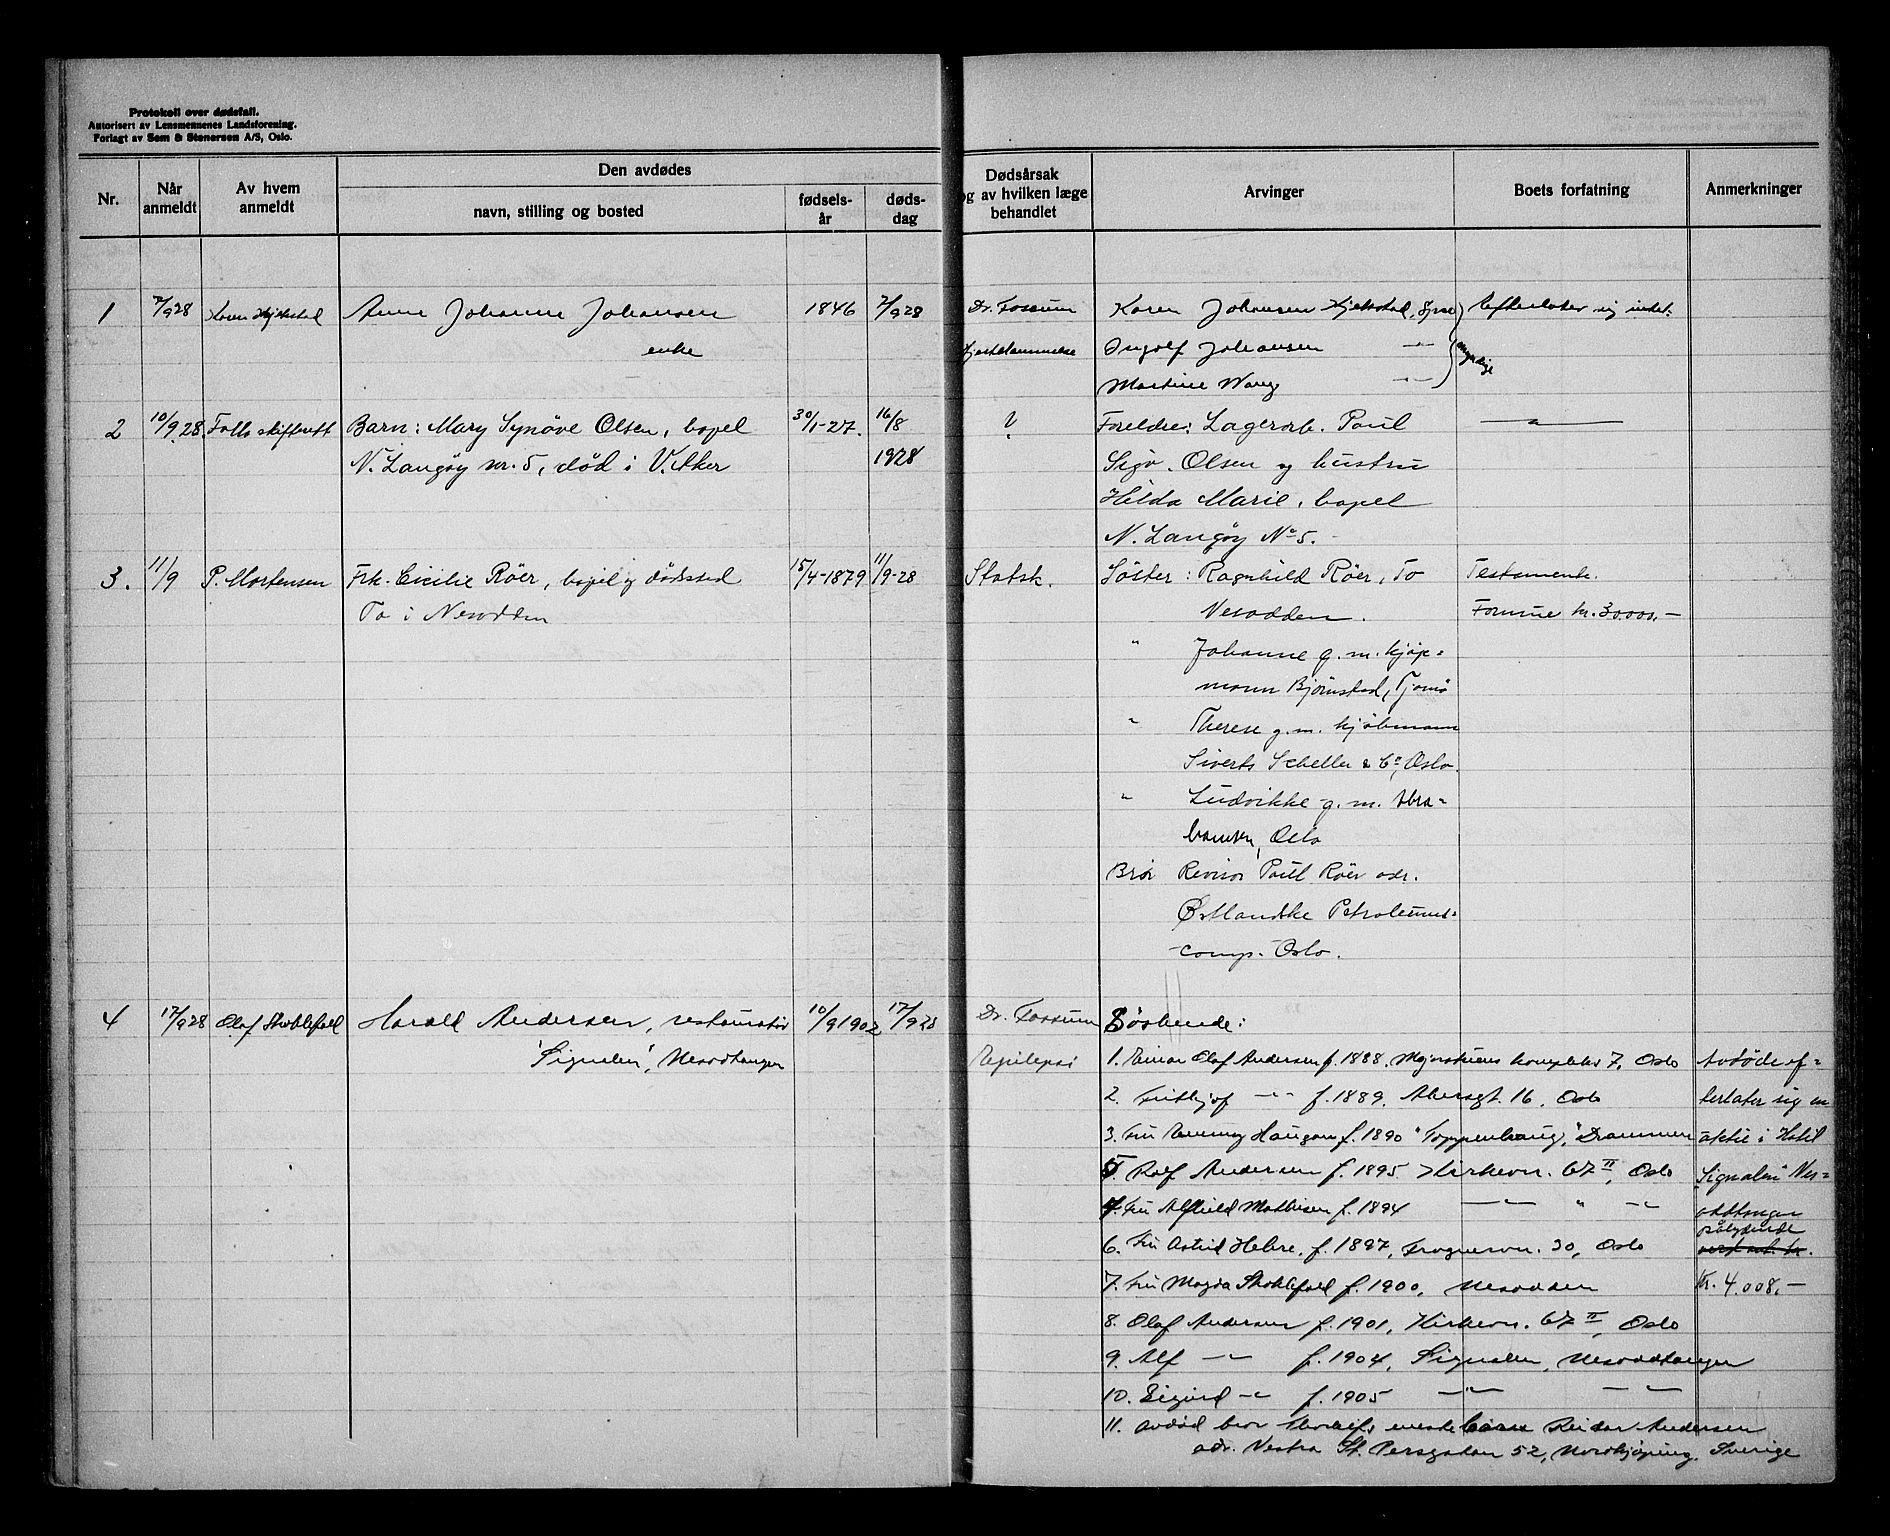 Protokoll over dødsfall.
Autorisert av Lensmennenes Landsforening.
Forlagt av Sem & Stenersen A/S, Oslo.
Nr.
Når anmeldt
Av hvem anmeldt
Den avdødes
navn, stilling og bosted
fødsels-år
døds-dag
Dødsårsak
og av hvilken læge
behandlet
Arvinger
Boets forfatning
Anmerkninger
1 7/9 28 Karen Anne Johanne Johansen 1846 7/9 28 Dr. Fossum Karen Johansen Efterlater sig intet.
enke Hjertelammelse Ingolf Johansen —"— myndige
Martine Wang —"—
2 10/9.28. Follo skifterett Barn: Mary Synøve Olsen, bopel 30/1-27. 16/8 ? Foreldre: Lagerarb. Paul —"—
N. Langøy nr. 5, død i V. Aker 1928 Sigv. Olsen og hustru
Hilda Marie, bopel
N. Langøy No 5.
3. 11/9 P. Mortensen Frk. Cicilie Røer, bopel og dødssted 15/4-1879 11/9-28 Statsk. Søster: Ragnhild Røer, To Testamente.
To i Nesodden Nesodden. Formue kr. 30.000.-
" Johanne g. m. kjøp=
mann Bjørnstad, Tjømø
" Therese g. m. kjøbmann
Siverts Scheller & Co, Oslo.
" Ludvikke g. m. Abra=
hamsen, Oslo
Bror Revisor Paul Røer adr.
Østlandske Petroleums=
comp. Oslo.
4 17/9 28 Olaf Harald Andersen, restauratør 10/9 1902 17/9 28 Dr. Fossum Søskende:
"Signalen", Nesoddtangen Epilepsi 1. Einar Olaf Andersen f. 1888. Majorstuens kompleks 7, Oslo Avdøde ef=
2. Fridtjof —"— f. 1889. 16, Oslo terlater sig en
3. Fru Haugan f. 1890 "Toppenhaug," Drammen aktie i Hotel
5. Rolf Andersen f. 1895 Kirkevn. 67 II, Oslo "Signalen" Nes=
4. Fru Alfhild Mathisen f. 1894 —"— " —"— oddtangen
pålydende
6. Fru Astrid f. 1897, Frognervn. 30, Oslo
7. Fru Magda f. 1900, Nesodden Kr. 4.008.-
8. Olaf Andersen f. 1901, Kirkevn. 67 II, Oslo
9. Alf —"— f. 1904, Signalen, Nesoddtangen
10. Sigurd —"— f. 1905 —"— —"—
11. Avdød bror eneste barn Reidar Andersen
adr. Vestra St. Persgatan 52, Norrkjøping, Sverige